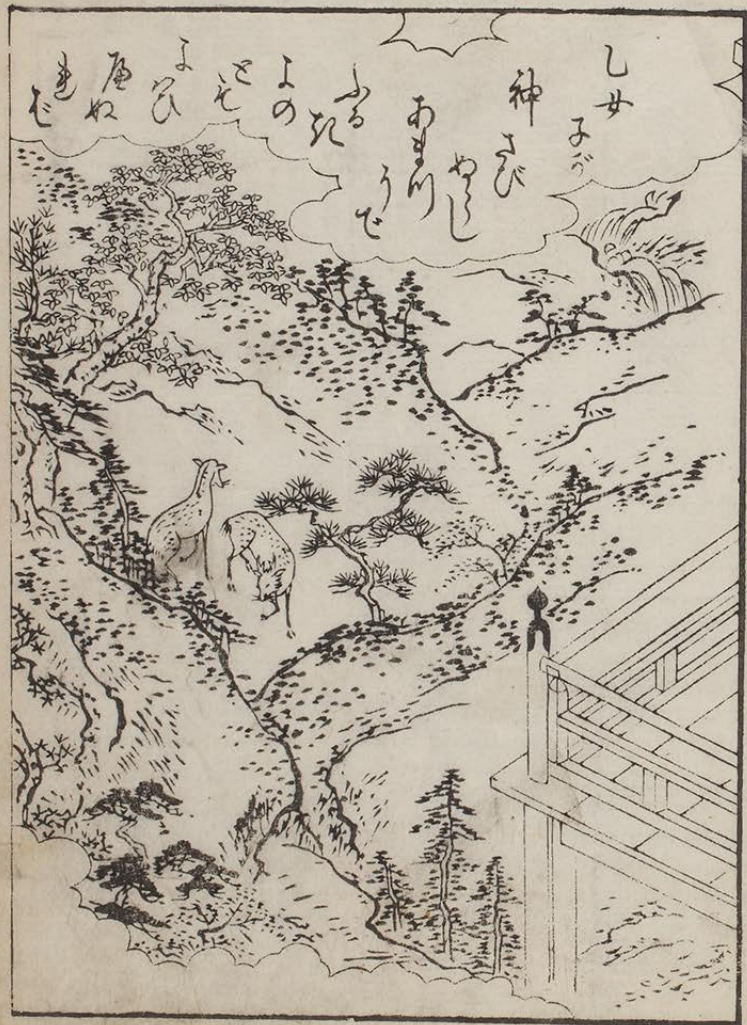 乙女
子が
神
さび
ぬらし
あまつ
そで
ふる
き
よの
とも
よはひ
へぬ
れば